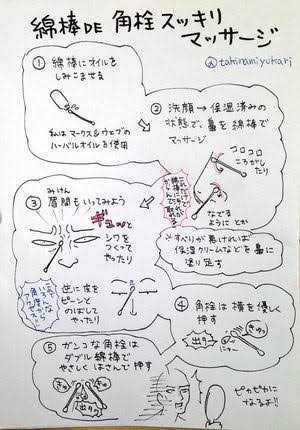 綿棒DE 角栓スッキリ
マッサージ
@takinamiyukari
① 綿棒にオイルを
しみこませる
私はマークス&ウェブの
ハーバルオイルを使用
② 洗顔→保湿済みの
状態で、鼻を綿棒で
マッサージ
コロコロ
ころがし
たり
なでる
ように とか
※すべりが悪ければ
保湿クリームなどを鼻に
塗り足す
③ 眉間もいってみよう
みけん
ギュッと
シワを
つくって
やったり
逆に皮を
ピーンと
のばして
やったり
いろんな
角度から
アクセス!
④ 角栓は横を優しく
押す
出ター
⑤ ガンコな角栓は
ダブル綿棒で
やさしくはさんで押す
ぎゅ
ぎゅ
出ター
ピカピカに
なるよ!!